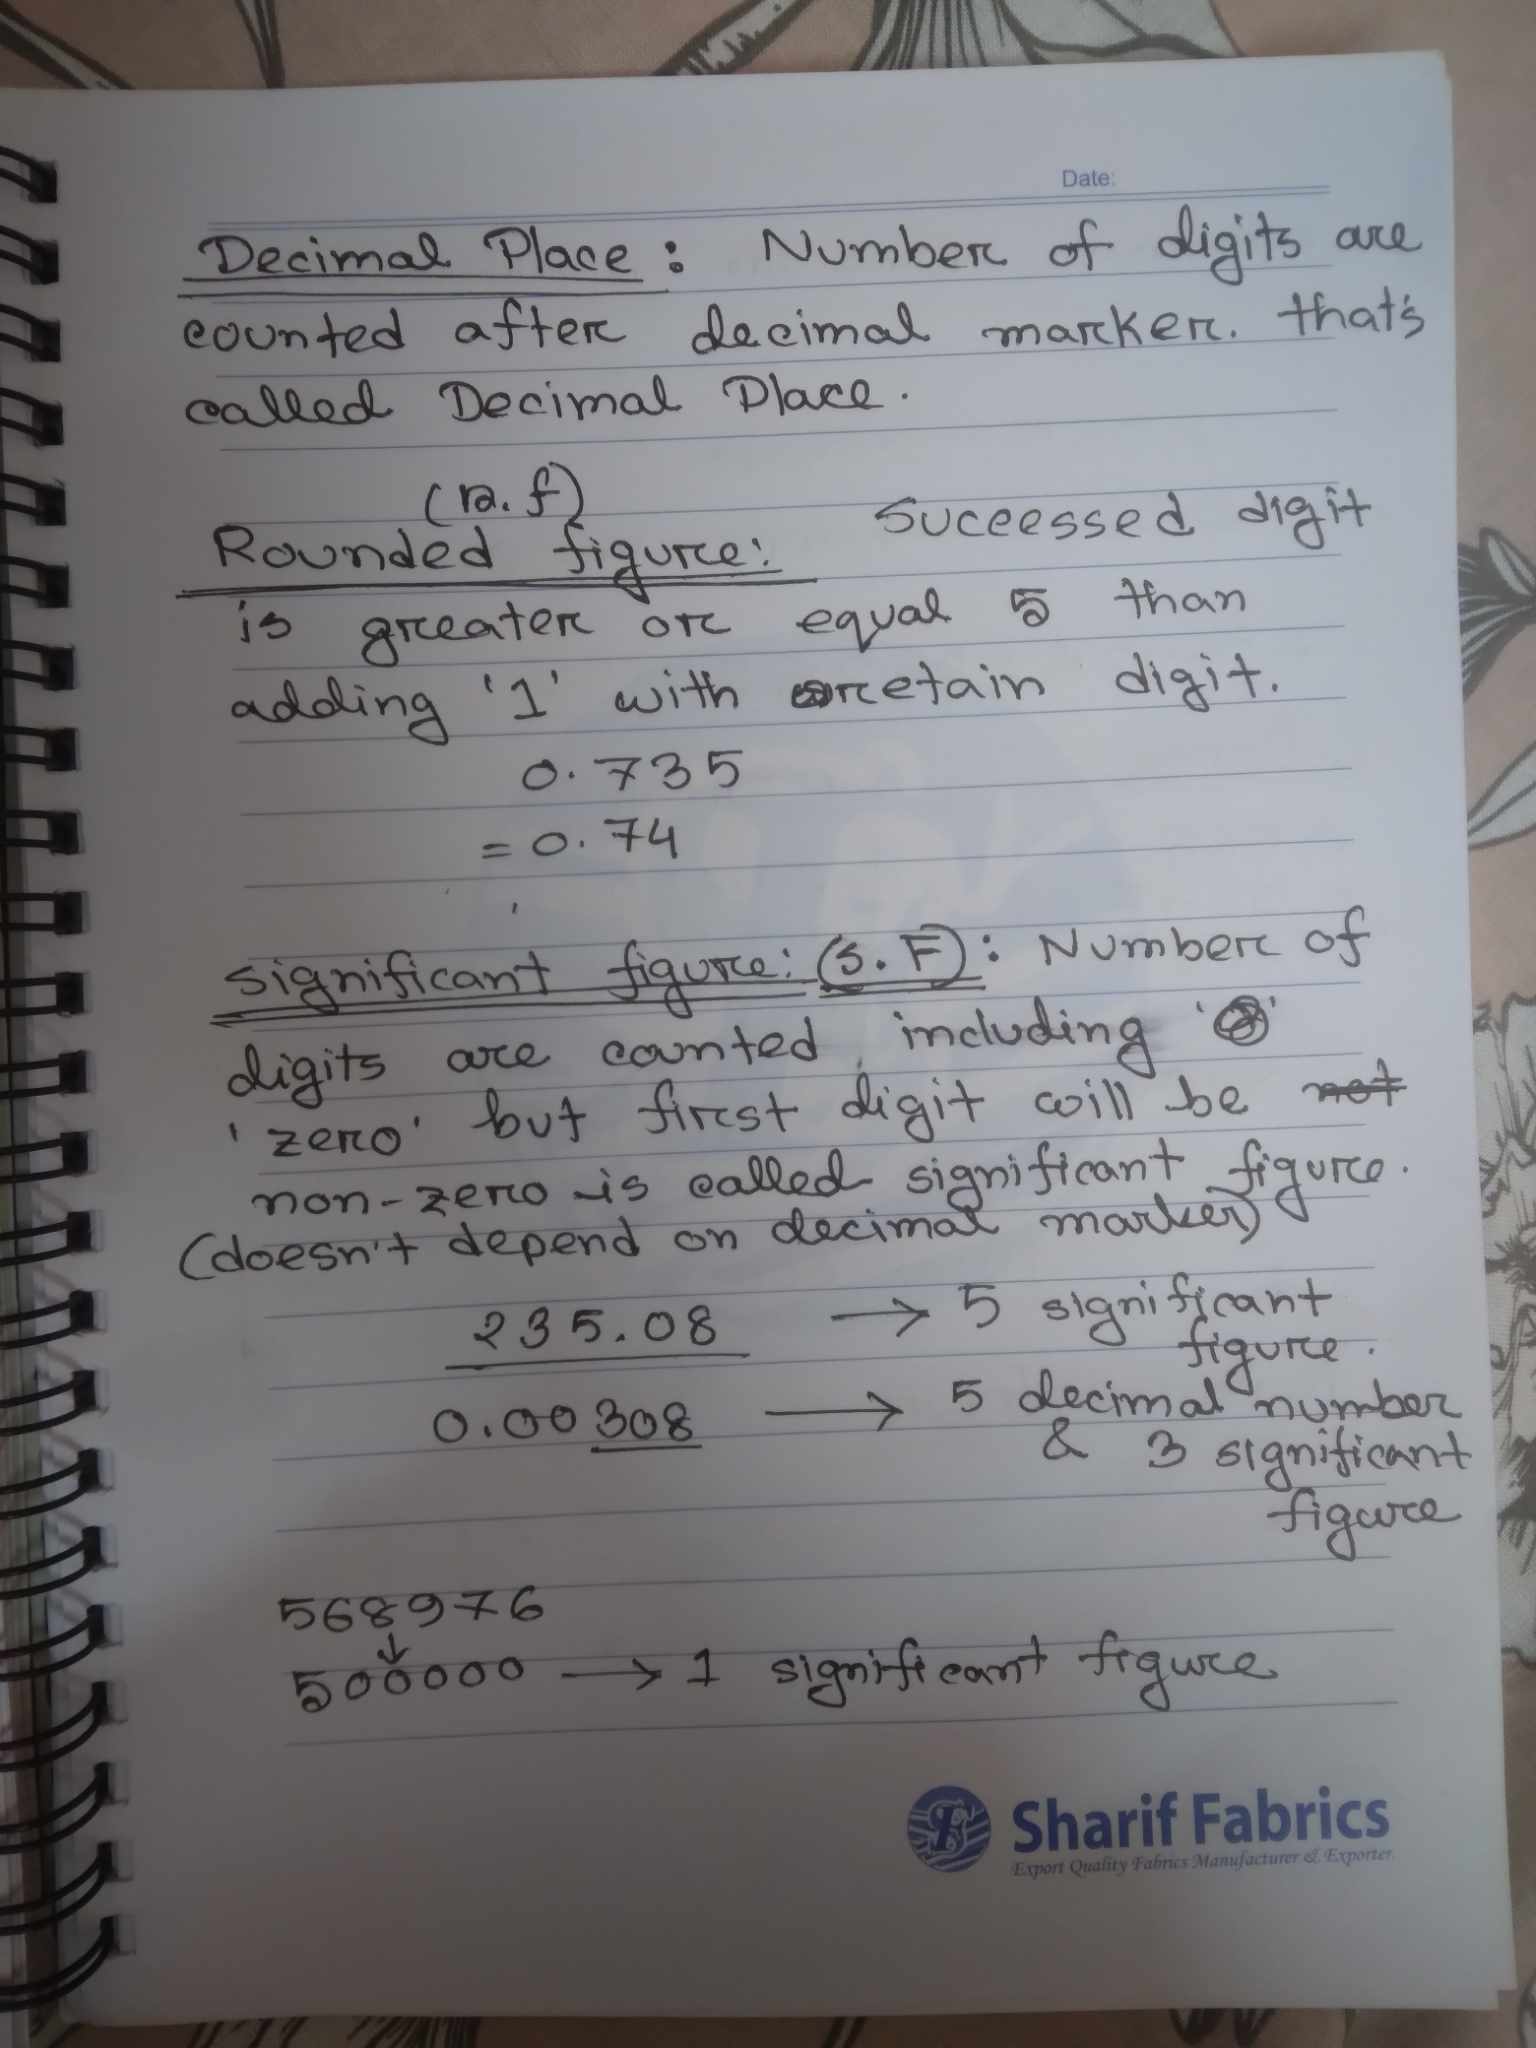 Date:
Decimal Place: Number of digits are
counted after decimal marker. that's
called Decimal Place.
(r. f)
Rounded figure: Sucessed digit
is greater or equal 5 than
adding '1' with cretain digit.
0.735
= 0.74
significant figure: (S.F): Number of
digits are counted, including
'zero' but first digit will be not
non-zero is called significant figure.
(doesn't depend on decimal marker)
235.08 → 5 significant
figure.
0.00308 → 5 decimal number
& 3 significant
figure
568976
↓
500000 → 1 significant figure
Sharif Fabrics
Export Quality Fabrics Manufacturer & Exporter